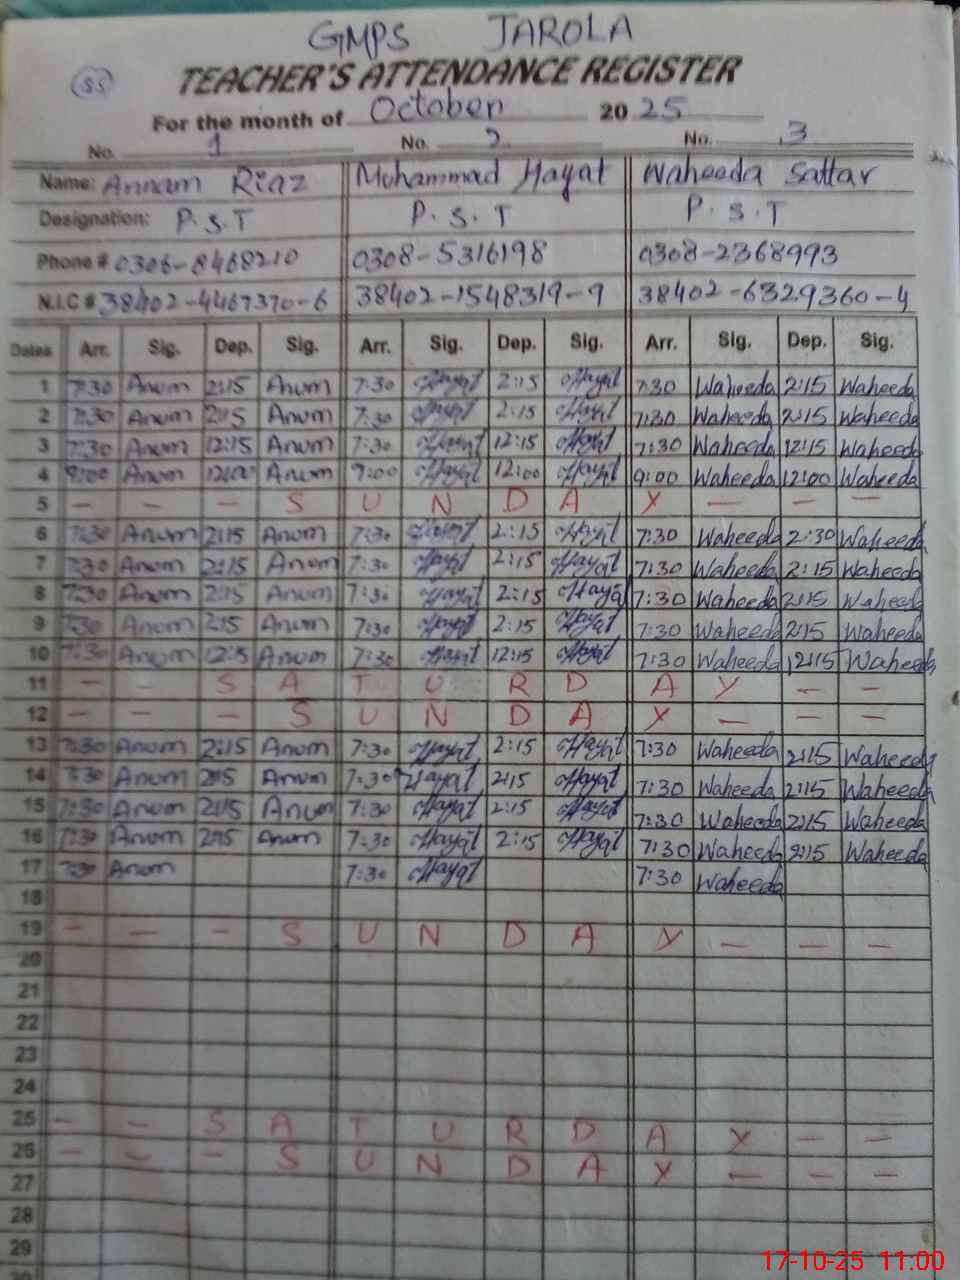 GMPS JAROLA
85
TEACHER'S ATTENDANCE REGISTER
For the month of October 2025
No. 1 No. 2 No. 3
Name: Annam Riaz Muhammad Hayat Waheeda Sattar
Designation: P.S.T P.S.T P.S.T
Phone # 0306-8468210 0308-5316198 0308-2368993
N.I.C # 38402-4467370-6 38402-1548319-9 38402-6329360-4
Dates Arr. Sig. Dep. Sig. Arr. Sig. Dep. Sig. Arr. Sig. Dep. Sig.
1 7:30 Anum 2:15 Anum 7:30 Hayat 2:15 Hayat 7:30 Waheeda 2:15 Waheeda
2 7:30 Anum 2:15 Anum 7:30 Hayat 2:15 Hayat 7:30 Waheeda 2:15 Waheeda
3 7:30 Anum 12:15 Anum 7:30 Hayat 12:15 Hayat 7:30 Waheeda 12:15 Waheeda
4 9:00 Anum 12:00 Anum 9:00 Hayat 12:00 Hayat 9:00 Waheeda 12:00 Waheeda
5 - - - S U N D A Y - - -
6 7:30 Anum 2:15 Anum 7:30 Hayat 2:15 Hayat 7:30 Waheeda 2:30 Waheeda
7 7:30 Anum 2:15 Anum 7:30 Hayat 2:15 Hayat 7:30 Waheeda 2:15 Waheeda
8 7:30 Anum 2:15 Anum 7:30 Hayat 2:15 Hayat 7:30 Waheeda 2:15 Waheeda
9 7:30 Anum 2:15 Anum 7:30 Hayat 2:15 Hayat 7:30 Waheeda 2:15 Waheeda
10 7:30 Anum 12:15 Anum 7:30 Hayat 12:15 Hayat 7:30 Waheeda 12:15 Waheeda
11 - - S A T U R D A Y - -
12 - - - S U N D A Y - - -
13 7:30 Anum 2:15 Anum 7:30 Hayat 2:15 Hayat 7:30 Waheeda 2:15 Waheeda
14 7:30 Anum 2:15 Anum 7:30 Hayat 2:15 Hayat 7:30 Waheeda 2:15 Waheeda
15 7:30 Anum 2:15 Anum 7:30 Hayat 2:15 Hayat 7:30 Waheeda 2:15 Waheeda
16 7:30 Anum 2:15 Anum 7:30 Hayat 2:15 Hayat 7:30 Waheeda 2:15 Waheeda
17 7:30 Anum 7:30 Hayat 7:30 Waheeda
18
19 - - - S U N D A Y - - -
20
21
22
23
24
25 - - S A T U R D A Y - -
26 - - - S U N D A Y - - -
27
28
29
17-10-25 11:00